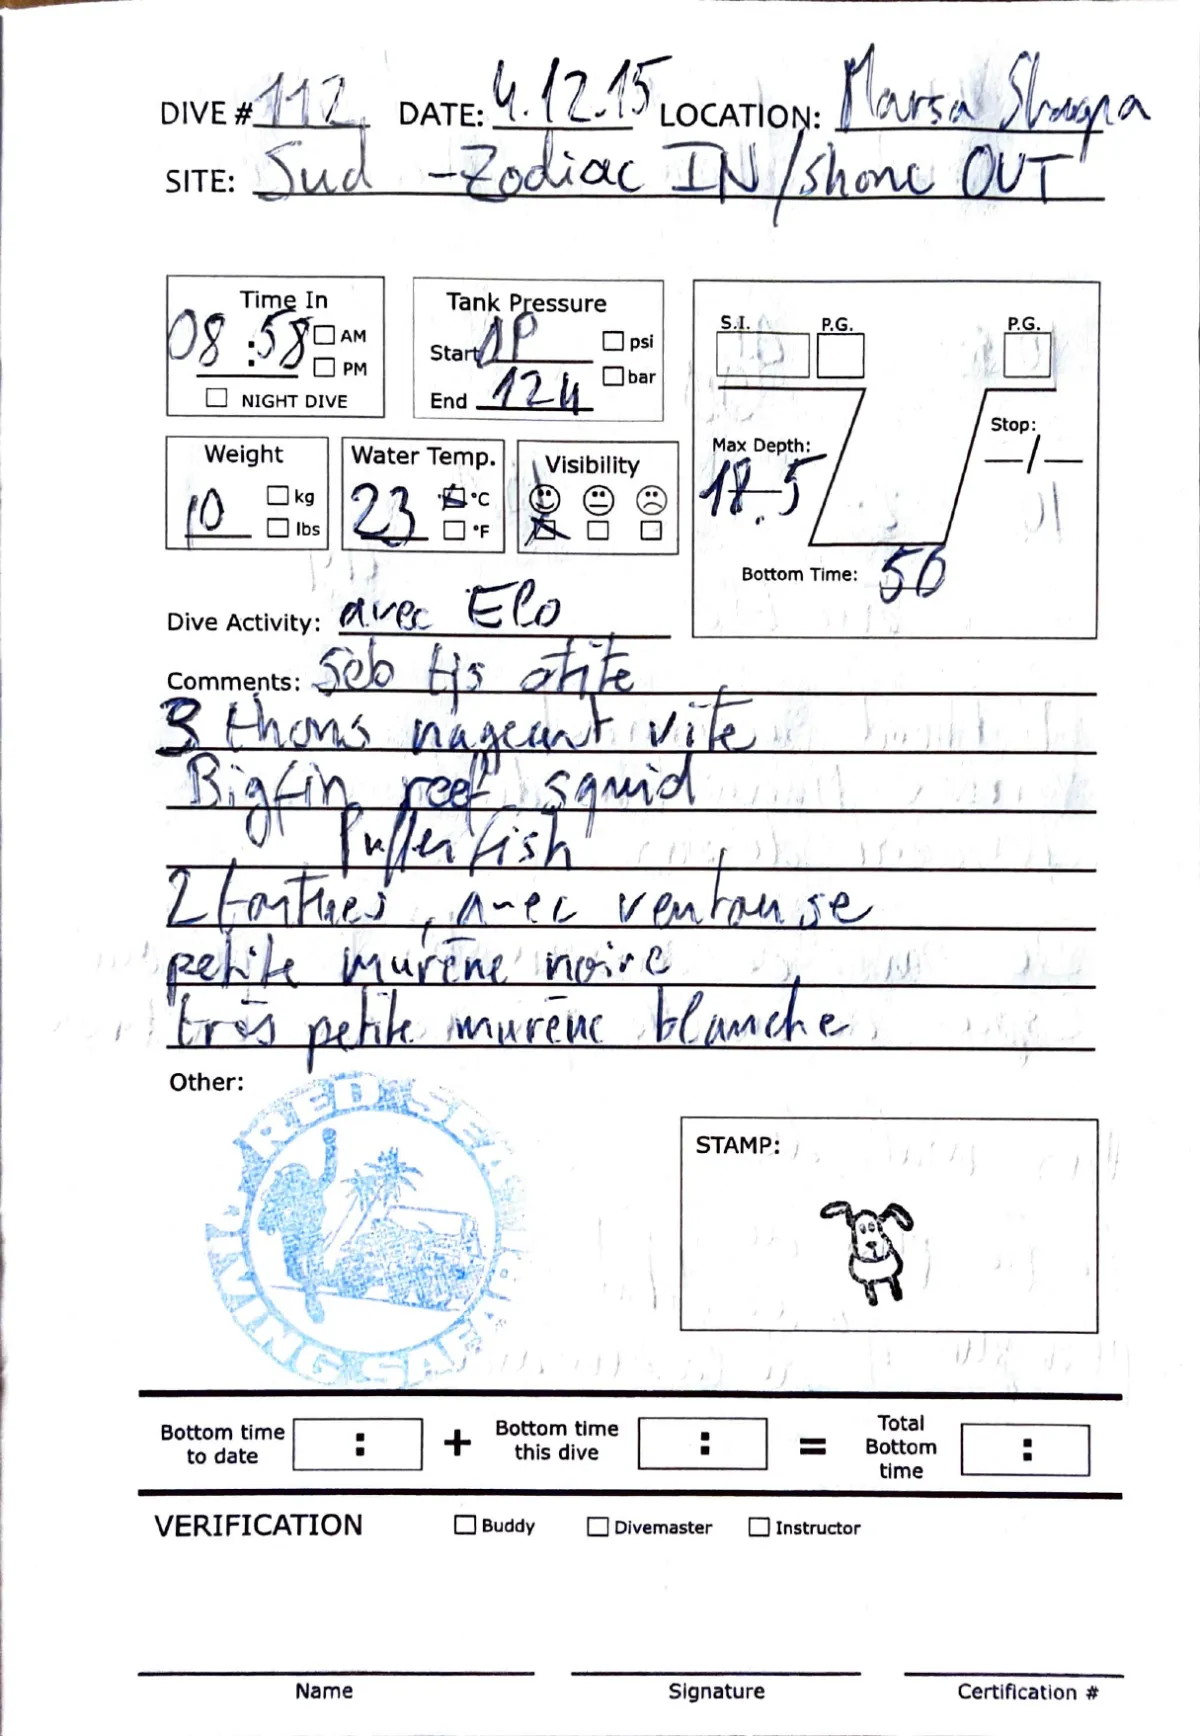 DIVE # 112 DATE: 4.12.15 LOCATION: Marsa Shagra
SITE: Sud - Zodiac IN/shore OUT
Time In
08:58 AM
PM
NIGHT DIVE
Tank Pressure
Start psi
End 124 bar
S.I. P.G. P.G.
Max Depth: Stop:
18.5 _/_
Bottom Time: 56
Weight
10 kg
lbs
Water Temp.
23 °C
°F
Visibility
Dive Activity: avec Elo
Comments: Seb tjs otite
3 thons nageant vite
Bigfin reef squid
Pufferfish
2 tortues, avec ventouse
petite murène noire
très petite murène blanche
Other:
RED SEA DIVING SAFARI
STAMP:
Bottom time to date : + Bottom time this dive : = Total Bottom time :
VERIFICATION Buddy Divemaster Instructor
Name Signature Certification #